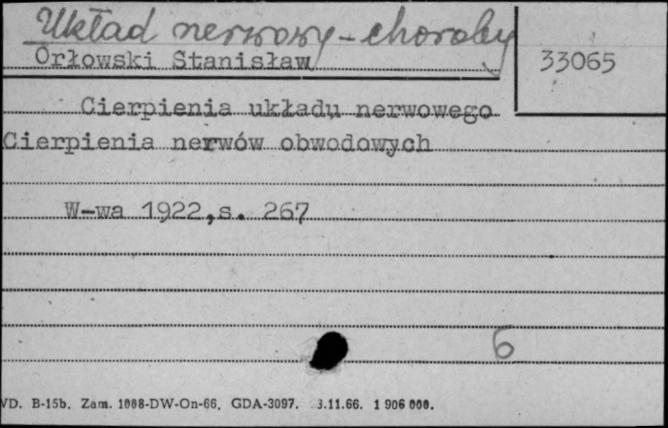 Układ nerwowy - choroby
Orłowski Stanisław
33065
Cierpienia układu nerwowego
Cierpienia nerwów obwodowych
W-wa 1922, s. 267
6
VD. B-15b. Zam. 1088-DW-On-66. GDA-3097. 3.11.66. 1 906 000.